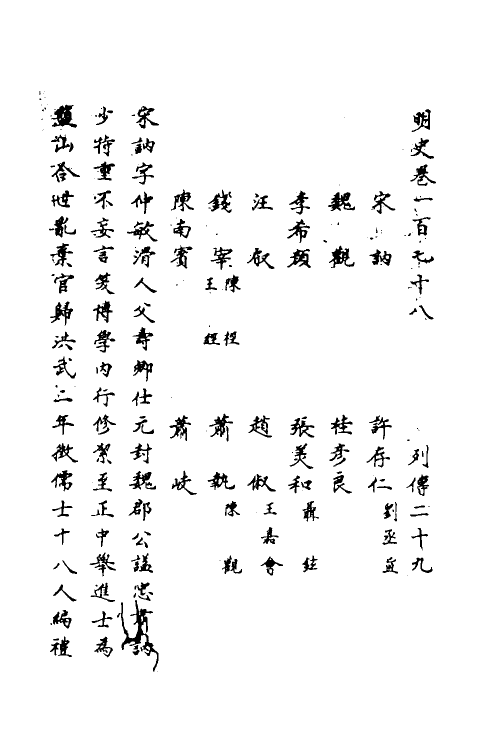 明史卷一百七十八 列傳二十九
宋訥 許存仁 劉丞直
魏觀 桂彥良
李希顏 張美和 聶鉉
汪叡 趙俶 王嘉會
錢宰 陳桱 王經 蕭執 陳觀
陳南賓 蕭岐
宋訥字仲敏滑人父壽卿仕元封魏郡公謚忠肅訥
少持重不妄言笑博學内行修絜至正中舉進士為
鹽山令世亂棄官歸洪武二年徵儒士十八人編禮